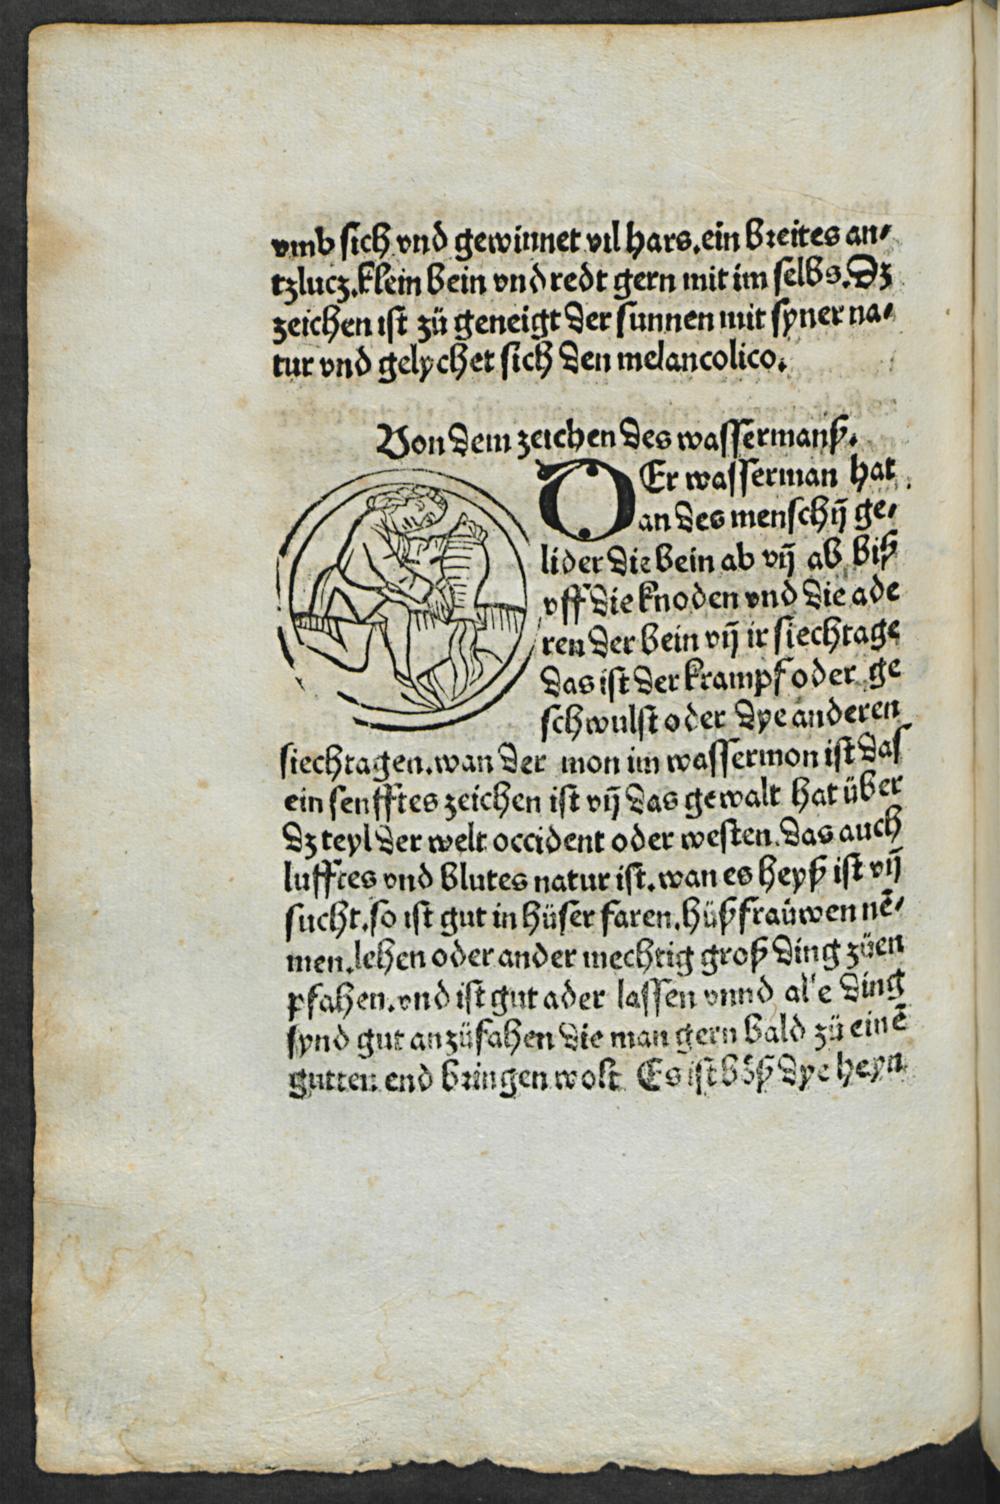 vmb sich vnd gewinnet vil hars.ein breites an⸗
tzlucz.klein bein vnd redt gern mit im selbs.Dz
zeichen ist zů geneigt der sunnen mit syner na⸗
tur vnd gelychet sich den melancolico.
Von dem zeichen des wassermanß.
DEr wasserman hat
an des menschē ge⸗
lider die bein ab vn̄ ab biß
vff die knoden vnd die ade
ren der bein vn̄ ir siechtage
das ist der krampf oder ge
schwulst oder dye anderen
siechtagen.wan der mon im wassermon ist das
ein senfftes zeichen ist vn̄ das gewalt hat über
dz teyl der welt occident oder westen.das auch
lufftes vnd blutes natur ist.wan es heyß ist vn̄
fucht.so ist gut in hüser faren.hüßfraüwen nē⸗
men.lehen oder ander mechtig groß ding zůen
pfahen.vnd ist gut ader lassen vnnd alle ding
synd gut anzůfahen die man gern bald zů einē
gutten end bringen wolt Es ist böß dye heyn